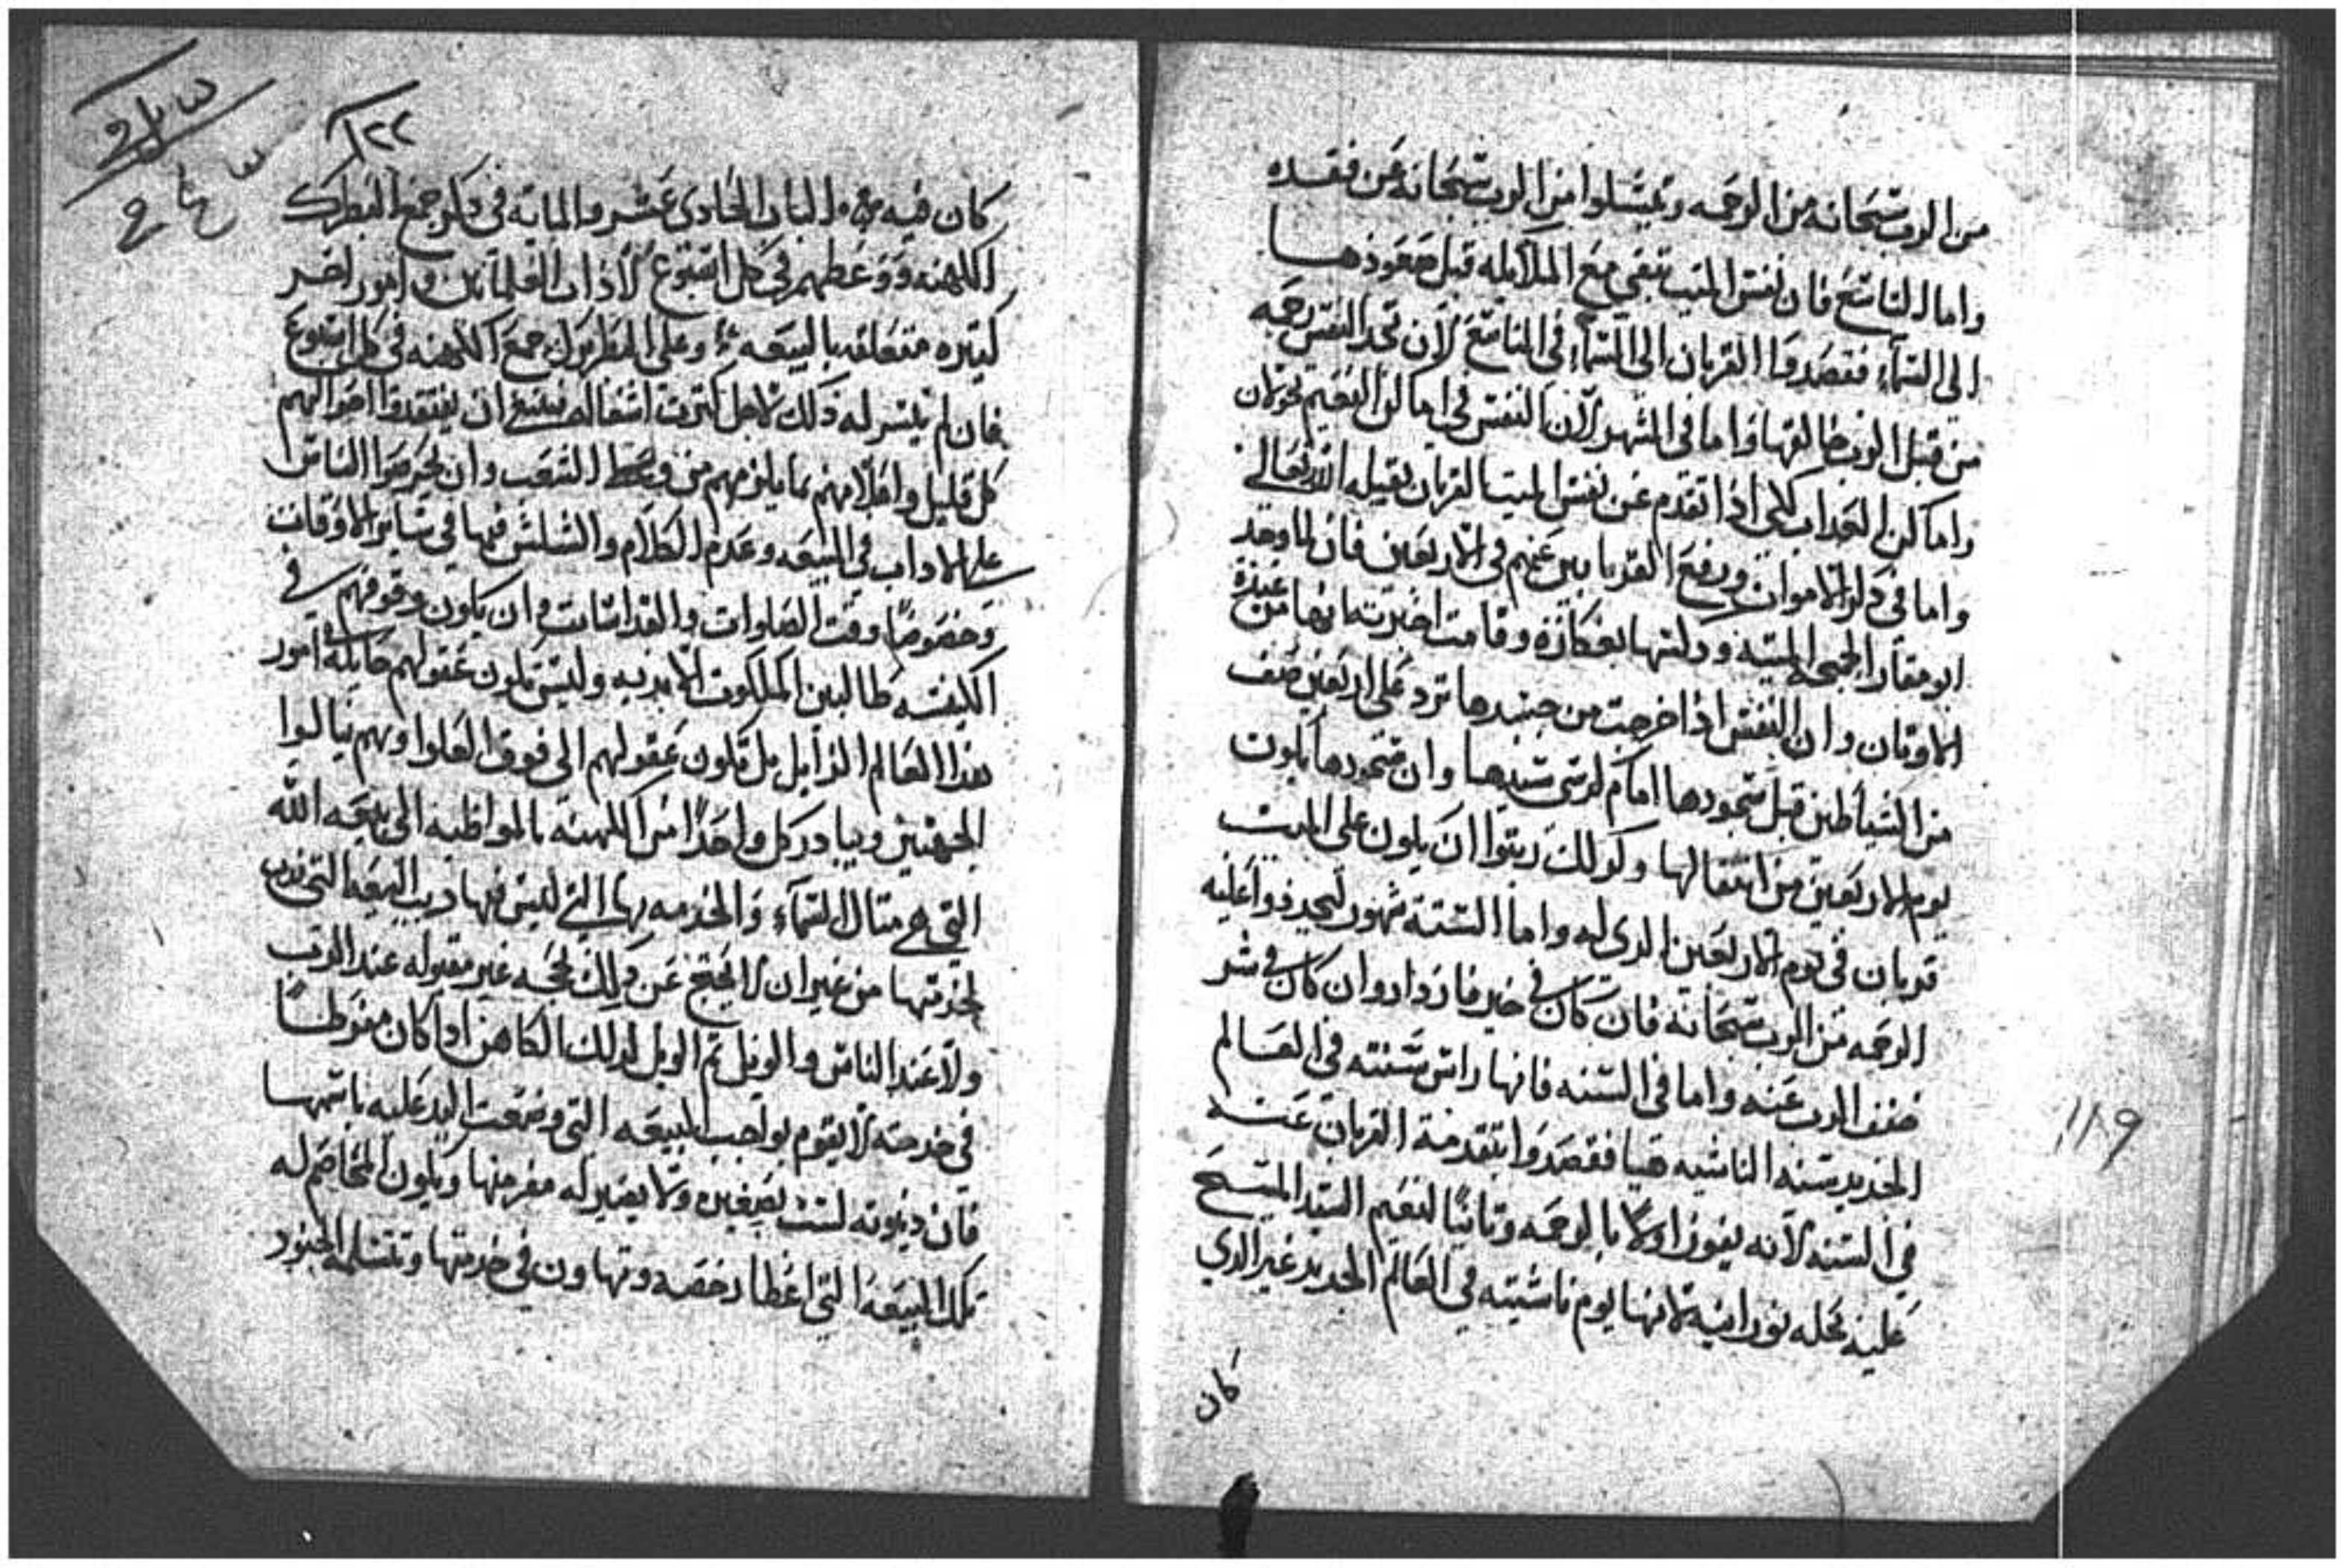 من الرب سبحانه من الرحمه وتمسلوا من الرب سبحانه عن فقده
واما التاسع فان نفس الميت تبقي مع الملايكه قبل صعودها
الى السماء فقصدوا القربان الى السماء في التاسع لان تجد النفس رحمه
من قبل الرب خالقها واما في الشهر لان النفس في اماكن النعيم
واماكن العداب لكي اذا تقدم عن نفس الميت القربان يقبله الله تعالى
واما في ذكر الاموات ورفع القرابين عنهم في الاربعين فان لما وجد
ابو مقار الجمجمه الميته وكلتها بعكازه وقامت اخبرته انها من عبدة
الاوتان وان النفس اذا خرجت من جسدها ترد على اربعين صنف
من الشياطين قبل سجودها امام كرسي سيدها وان سجودها يكون
يوم الاربعين من انتقالها وكدلك رتبوا ان يكون على الميت
قربان في يوم الاربعين الدى له واما الستة شهور ليجددوا عليه
الرحمه من الرب سبحانه فان كان في خير فازداد وان كان في شر
خفف الرب عنه واما في السنه فانها راس سنته في العالم
الجديد سنه الناشيه هيا فقصدوا بتقدمة القربان عنه
في السنه لانه يفوز اولا بالرحمه وتانيًا لنعيم السيد المسيح
عليه بحله نورانيه لانها يوم ناشيته في العالم الجديد غير الدي
كان
١١٨٩
١٢٢
كان فيه الباب الحادى عشر والمايه في دكر جمع البطرك
الكهنه ووعظهم في كل اسبوع لاداب العلمانين وامور اخر
كتيره متعلقه بالبيعه وعلى البطريرك جمع الكهنه في كل اسبوع
فان لم تيسر له ذلك لاجل كترت اشغاله فينبغي ان يفتقدوا احوالهم
كل قليل واعلامهم بما يلزمهم من وعظ الشعب وان يحرصوا الناس
على الاداب في البيعه وعدم الكلام والشلش فيها في سائر الاوقات
وخصوصًا وقت الصلوات والقداسات وان يكون وقوفهم في
الكنيسه طالبين الملكوت الابديه وليس تكون عقولهم حايله امور
هدا العالم الزايل بل تكون عقولهم الى فوق العلوا وبهم ينالوا
ويبادر كل واحدًا من الكهنه بالمواظبه الى بيعه الله
التي هي متال السماء والخدمه بها التي ليس فيها درب البيعه التي ندب
لخدمتها من غير ان لا يحتج عن دلك بحجه غير مقبوله عند الرب
ولا عند الناس والويل تم الويل لدلك الكاهن ادا كان مفرطًا
في خدمته لا يقوم بواجب البيعه التي وضعت اليد عليه باسمها
فان دينونته ليست بصغيره ولا يصير له مفر منها ويكون المخاصم له
تلك البيعه التي اعطا رخصه وتهاون في خدمتها وتتسلمه الجنود